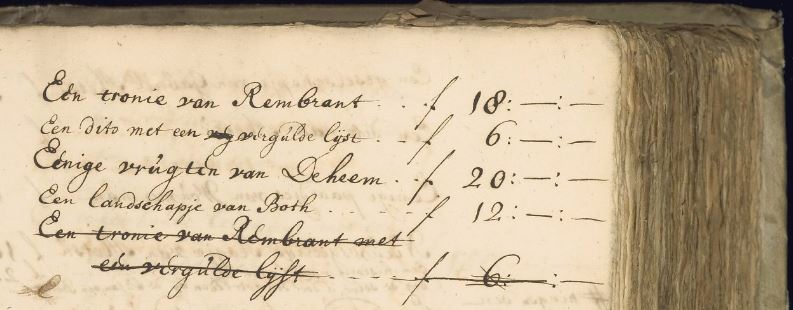 Een tronie van Rembrant . . f 18:—:—
Een dito met een vergulde lijst . . f 6:—:—
Eenige vrugten van Deheem . . f 20:—:—
Een landschapje van Both . . . f 12:—:—
Een tronie van Rembrant met
een vergulde lijst . . . . f 6: